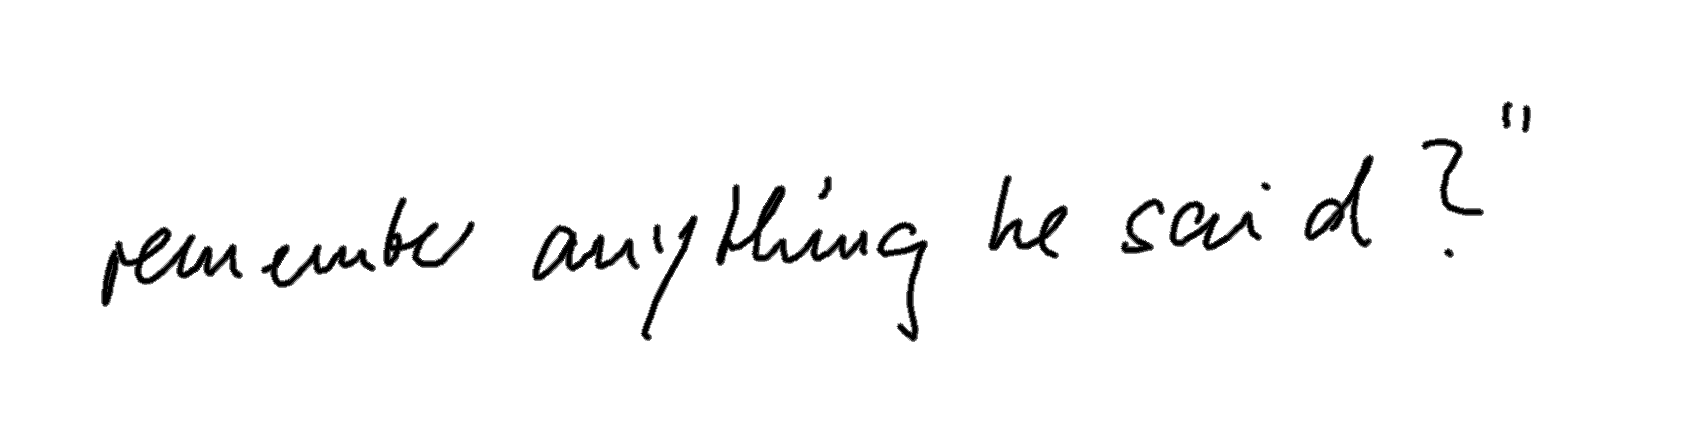 remember anything he said?"